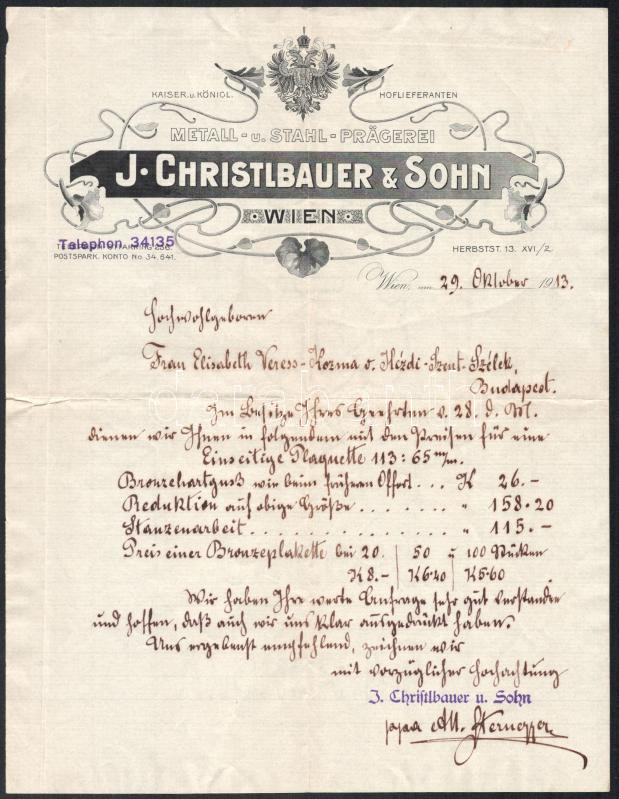 KAISER. u. KÖNIGL. HOFLIEFERANTEN
METALL- u. STAHL-PRÄGEREI
J. CHRISTLBAUER & SOHN
WIEN
Telephon 34135
POSTSPARK. KONTO No 34.641.
HERBSTST. 13. XVI/2
Wien, am 29. Oktober 1913.
Hochwohlgeboren
Frau Elisabeth Veress-Kozma v. Kézdi-Szent-Szélek,
Budapest.
Im Besitze Ihres Geehrten v. 28. d. M.
dienen wir Ihnen in folgendem mit den Preisen für eine
Einseitige Plaquette 113:65 m/m.
Bronzehartguß wie beim früheren Offert... K 26.-
Reduktion auf obige Größe....... " 158.20
Stanzenarbeit................ " 115.-
Preis einer Bronzeplakette bei 20. | 50 u | 100 Stücken
K 8.- | K 6.40 | K 5.60
Wir haben Ihre werte Anfrage sehr gut verstanden
und hoffen, daß auch wir uns klar ausgedrückt haben.
Uns ergebenst empfehlend, zeichnen wir
mit vorzüglicher Hochachtung
J. Christlbauer u. Sohn
ppa